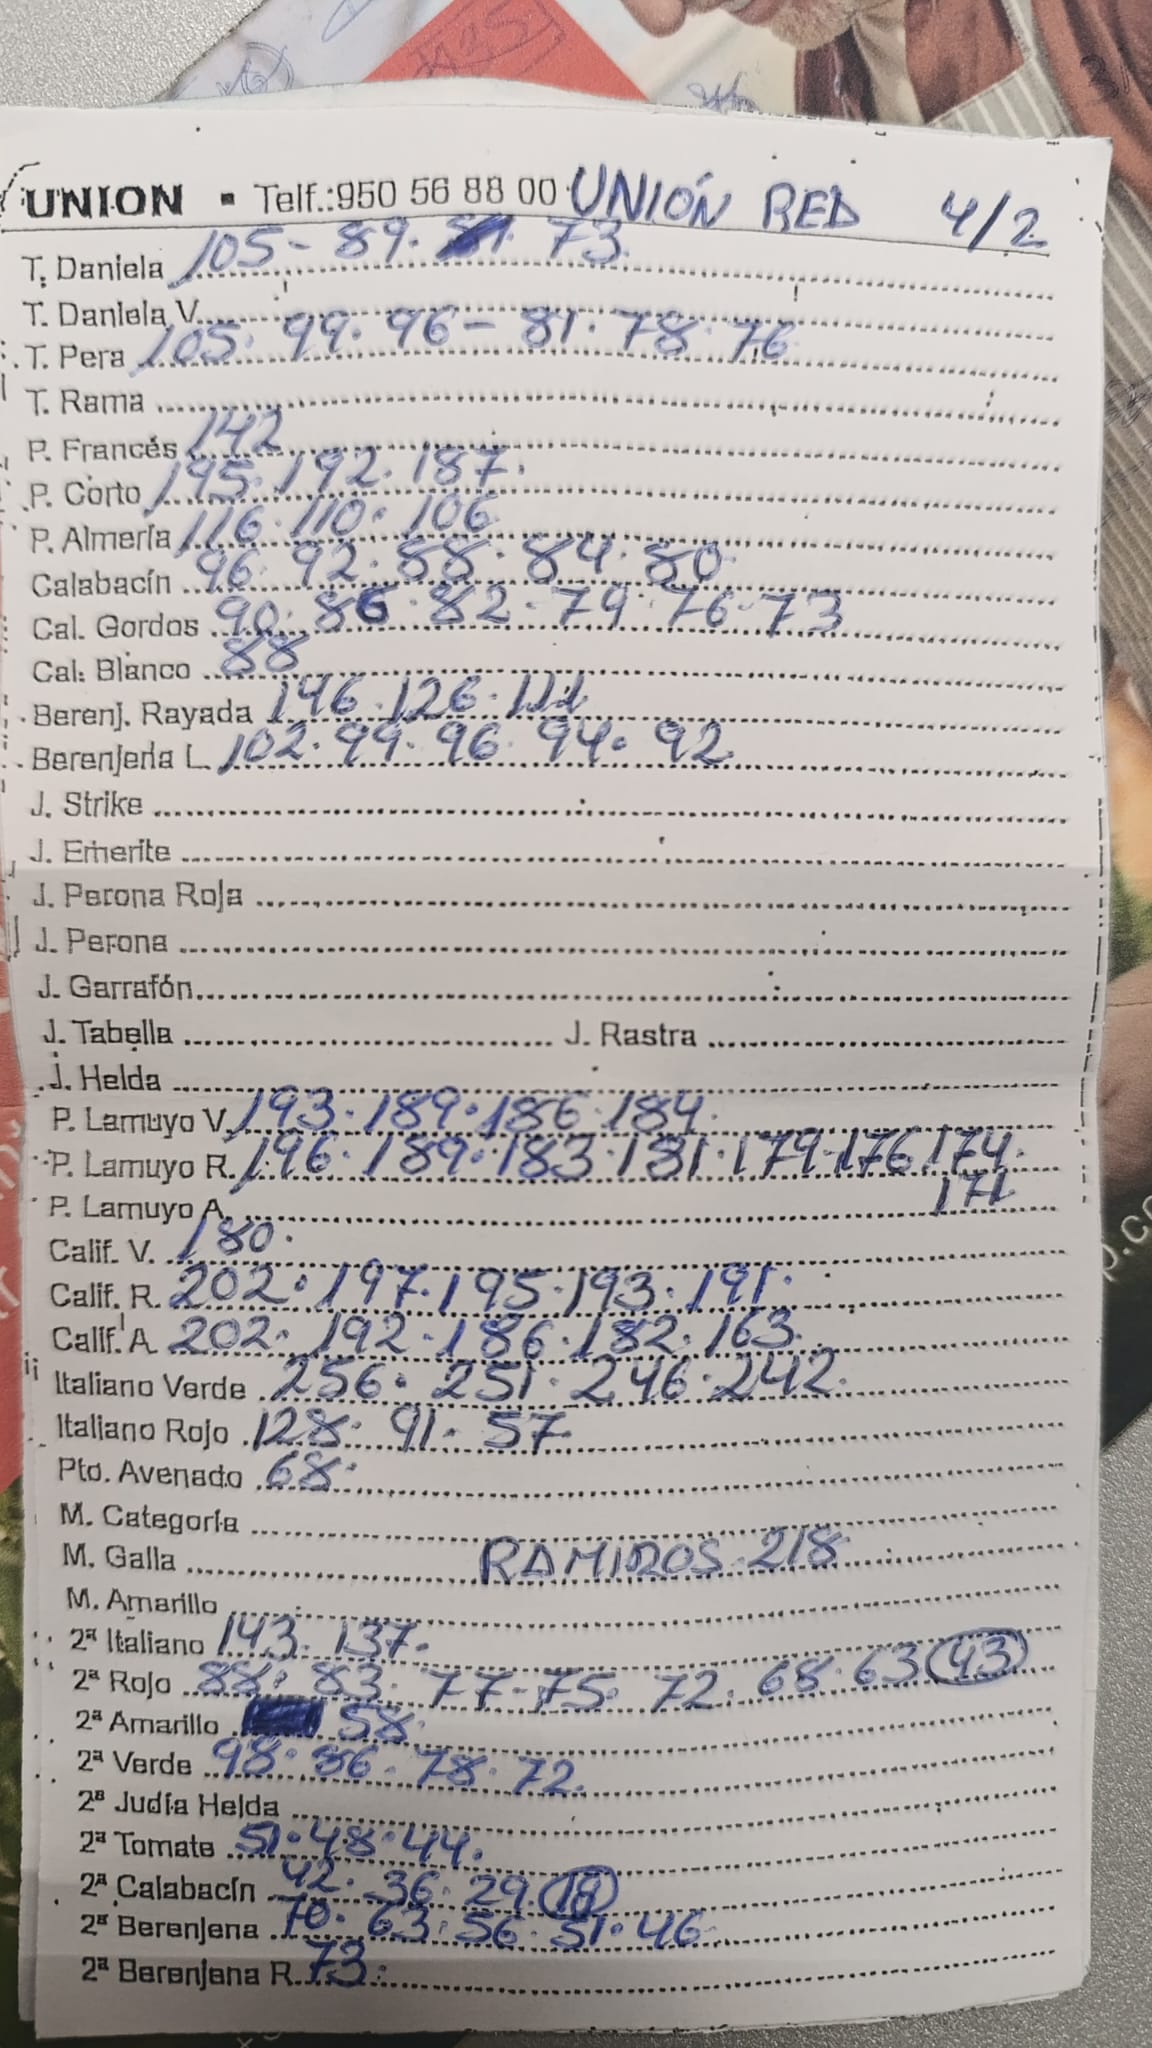 UNION ▪ Telf.:950 56 88 00 UNIÓN RED 4/2
T. Daniela 105 - 89. 73
T. Daniela V.
T. Pera 105. 99. 96 - 81. 78. 76
T. Rama
P. Francés 142
P. Corto 195. 192. 187.
P. Almería 116. 110. 106
Calabacín 96. 92. 88. 84. 80
Cal. Gordos 90. 86. 82 - 79. 76. 73
Cal. Blanco 88
Berenj. Rayada 146. 126. 111
Berenjena L. 102. 99. 96. 94. 92
J. Strike
J. Emerite
J. Perona Roja
J. Perona
J. Garrafón
J. Tabella J. Rastra
J. Helda
P. Lamuyo V. 193. 189. 186. 184.
P. Lamuyo R. 196. 189. 183. 181. 179. 176. 174.
171
P. Lamuyo A.
Calif. V. 180.
Calif. R. 202. 197. 195. 193. 191.
Calif. A. 202. 192. 186. 182. 163.
Italiano Verde 256. 251. 246. 242.
Italiano Rojo 128. 91. 57
Pto. Avenado 68.
M. Categoría
M. Galla RAMIROS 218
M. Amarillo
2ª Italiano 143. 137.
2ª Rojo 88. 83. 77 - 75. 72. 68. 63 43
2ª Amarillo 58.
2ª Verde 98. 86. 78. 72.
2ª Judía Helda
2ª Tomate 51. 48. 44.
2ª Calabacín 42. 36. 29
2ª Berenjena 70. 63. 56. 51. 46
2ª Berenjena R. 73.